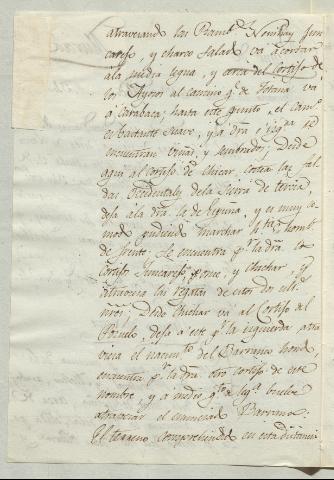 atravesando las Ramb.s Nombray Jun
carejo, y charco Salad va à cortar
à la piedra legua, y cerca del Cortijo de
los Ayosos al camino q.e de Totana va
à Caravaca; hasta este punto, el cam.o
es bastante suave, y à dra è izq.a se
encuentran viñas, y sembrados; desde
aqui al cortijo de chicar, cortea las fal
das Occidentales de la Sierra de tercia,
deja a la dra. la de Espuña, y es muy co
mod pudiendo marchar h.ta homb.s
de frente. Se encuentra p.r la dra. los
cortijos Juncarejo, ponce, y Chichar, y
atraviesa las regatas de estos dos ulti
mos; Desde chichar va al Cortijo del
Pozuelo, deja à este p.r la izquierda, atra
viesa el nacim.to del Barranco hond,
encuentra p.r la dra. otro cortijo de este
nombre, y a medio q.to de leg.a buelve
atravesar el mencionad Barranco.
El terreno comprehendid en esta distancia